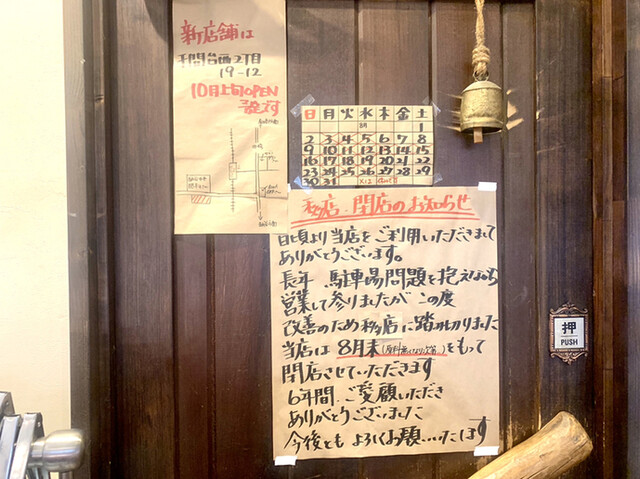 新店舗は
2丁目
19-12
10月上旬OPEN
予定です
日 月 火 水 木 金 土
1
2 3 4 5 6 7 8
9 10 11 12 13 14 15
16 17 18 19 20 21 22
23 24 25 26 27 28 29
30 31
移店・閉店のお知らせ
日頃より当店をご利用いただきまして
ありがとうございます。
長年 駐車場問題を抱えながら
営業して参りましたが この度
改善のため移店に踏み切りました
当店は 8月末(原料無くなり次第)をもって
閉店させていただきます
6年間 ご愛顧いただき
ありがとうございました
今後とも よろしくお願いいたします
押
PUSH